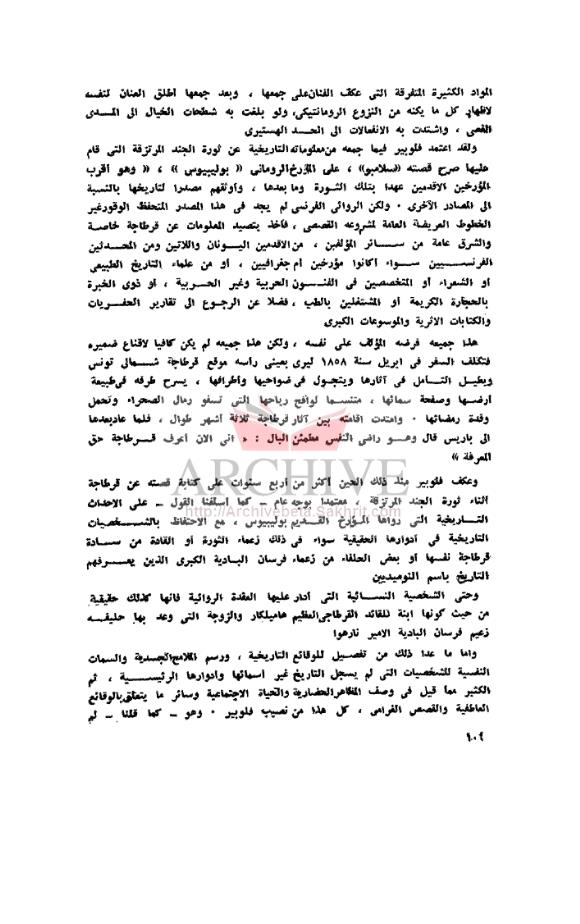 المواد الكثيرة المتفرقة التى عكف الفنان على جمعها ، وبعد جمعها أطلق العنان لنفسه
لاظهار كل ما يكنه من النزوع الرومانتيكى، ولو بلغت به شطحات الخيال الى المسدى
القصى ، واشتدت به الانفعالات الى الحسد الهستيرى
ولقد اعتمد فلوبير فيما جمعه من معلوماته التاريخية عن ثورة الجند المرتزقة التى قام
عليها صرح قصته «سلامبو» ، على المؤرخ الرومانى « بوليبيوس » ، « وهو أقرب
المؤرخين الاقدمين عهدا بتلك الثورة وما بعدها ، وأوثقهم مصدرا لتاريخها بالنسبة
الى المصادر الآخرى ٠ ولكن الروائى الفرنسى لم يجد فى هذا المصدر المتحفظ الوقور غير
الخطوط العريضة العامة لمشروعه القصصى ، فأخذ يتصيد المعلومات عن قرطاجة خاصة
والشرق عامة من سائر المؤلفين ، من الاقدمين اليونان واللاتين ومن المحدثين
الفرنسيين سواء أكانوا مؤرخين أم جغرافيين ، أو من علماء التاريخ الطبيعى
أو الشعراء أو المتخصصين فى الفنون الحربية وغير الحربية ، أو ذوى الخبرة
بالحجارة الكريمة أو المشتغلين بالطب ، فضلا عن الرجوع الى تقارير الحفريات
والكتابات الاثرية والموسوعات الكبرى
هذا جميعه فرضه المؤلف على نفسه ، ولكن هذا جميعه لم يكن كافيا لاقناع ضميره
فتكلف السفر فى ابريل سنة ١٨٥٨ ليرى بعينى رأسه موقع قرطاجة شمالى تونس
ويطيل التأمل فى آثارها ويتجول فى ضواحيها وأطرافها ، يسرح طرفه فى طبيعة
أرضها وصفحة سمائها ، متنسما لوافح رياحها التى تسفو رمال الصحراء وتحمل
وقدة رمضائها ٠ وامتدت اقامته بين آثار قرطاجة ثلاثة أشهر طوال ، فلما عاد بعدها
الى باريس قال وهو راضى النفس مطمئن البال : « انى الان أعرف قرطاجة حق
المعرفة »
وعكف فلوبير منذ ذلك الحين أكثر من أربع سنوات على كتابة قصته عن قرطاجة
أثناء ثورة الجند المرتزقة ، معتمدا بوجه عام – كما أسلفنا القول – على الاحداث
التاريخية التى رواها المؤرخ القديم بوليبيوس ، مع الاحتفاظ بالشخصيات
التاريخية فى أدوارها الحقيقية سواء فى ذلك زعماء الثورة أو القادة من سادة
قرطاجة نفسها أو بعض الحلفاء من زعماء فرسان البادية الكبرى الذين يعرفهم
التاريخ باسم النوميديين
وحتى الشخصية النسائية التى أدار عليها العقدة الروائية فانها كذلك حقيقية
من حيث كونها ابنة للقائد القرطاجى العظيم هاميلكار والزوجة التى وعد بها حليفه
زعيم فرسان البادية الامير نارهوا
واما ما عدا ذلك من تفصيل للوقائع التاريخية ، ورسم الملامح الجسدية والسمات
النفسية للشخصيات التى لم يسجل التاريخ غير اسمائها وادوارها الرئيسية ، ثم
الكثير مما قيل فى وصف المظاهر الحضارية والحياة الاجتماعية وسائر ما يتعلق بالوقائع
العاطفية والقصص الغرامى ، كل هذا من نصيب فلوبير ٠ وهو – كما قلنا – لم
ARCHIVE
http://Archivebeta.Sakhrit.com